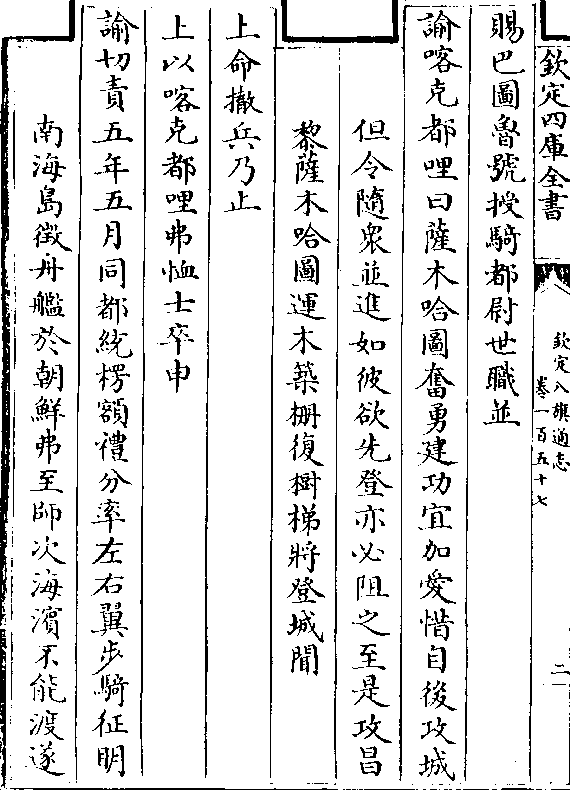 欽定四庫全書
欽定八旗通志
卷一百五十七
二
賜巴圖魯號授騎都尉世職並
諭喀克都哩曰薩木哈圖奮勇建功宜加愛惜自後攻城
但令隨衆並進如彼欲先登亦必阻之至是攻昌
黎薩木哈圖運木築柵復樹梯將登城聞
上命撤兵乃止
上以喀克都哩弗恤士卒申
諭切責五年五月同都統楞額禮分率左右翼步騎征明
南海島徵舟艦於朝鮮弗至師次海濱不能渡遂